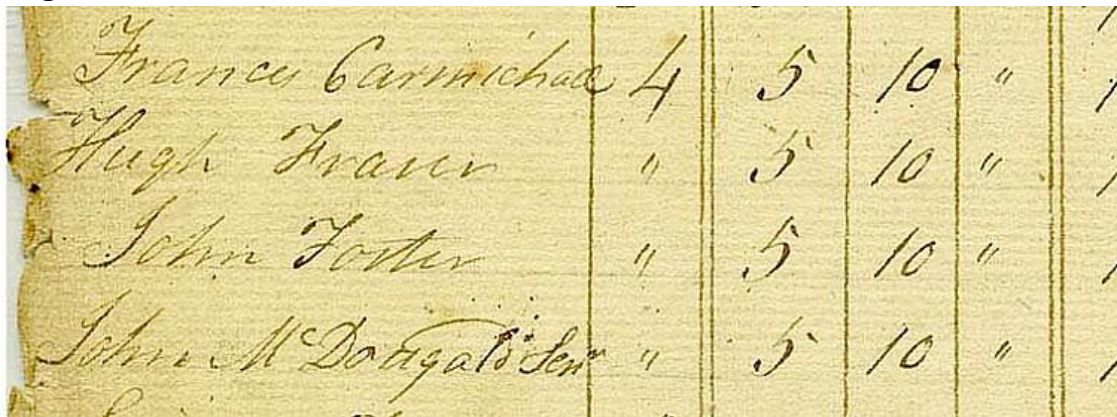 Francis Carmichael 4 5 10 "
Hugh Fraser " 5 10 "
John Foster " 5 10 "
John McDougald Senr " 5 10 "